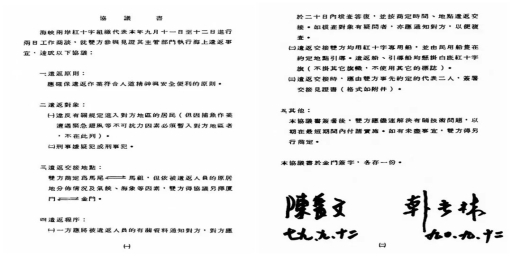 協議書
海峽兩岸紅十字組織代表本年九月十一日至十二日進行
兩日工作商談，就雙方參與見證其主管部門執行海上遣返事
宜，達成以下協議：
一、遣返原則：
應確保遣返作業符合人道精神與安全便利的原則。
二、遣返對象：
㈠違反有關規定進入對方地區的居民（但因捕魚作業
遭遇緊急避風等不可抗力因素必須暫入對方地區者
，不在此列）。
㈡刑事嫌疑犯或刑事犯。
三、遣返交接地點：
雙方商定為馬尾⟷馬祖，但依被遣返人員的原居
地分佈情況及氣候、海象等因素，雙方得協議另擇廈
門⟷金門。
四、遣返程序：
㈠一方應將被遣返人員的有關資料通知對方，對方應
㈠
於二十日內核查答復，並按商定時間、地點遣返交
接。如核查對象有疑問者，亦應通知對方，以便複
查。
㈡遣返交接雙方均用紅十字專用船，並由民用船隻在
約定地點引導。遣返船、引導船均懸掛白底紅十字
旗（不掛其它旗幟，不使用其它的標誌）。
㈢遣返交接時，應由雙方事先約定的代表二人，簽署
交接見證書（格式如附件）。
五、其他：
本協議書簽署後，雙方應儘速解決有關技術問題，以
期在最短期間內付諸實施。如有未盡事宜，雙方得另
行商定。
本協議書於金門簽字，各存一份。
陳長文 韓長林
七九、九、十二 九〇、九、十二
㈡